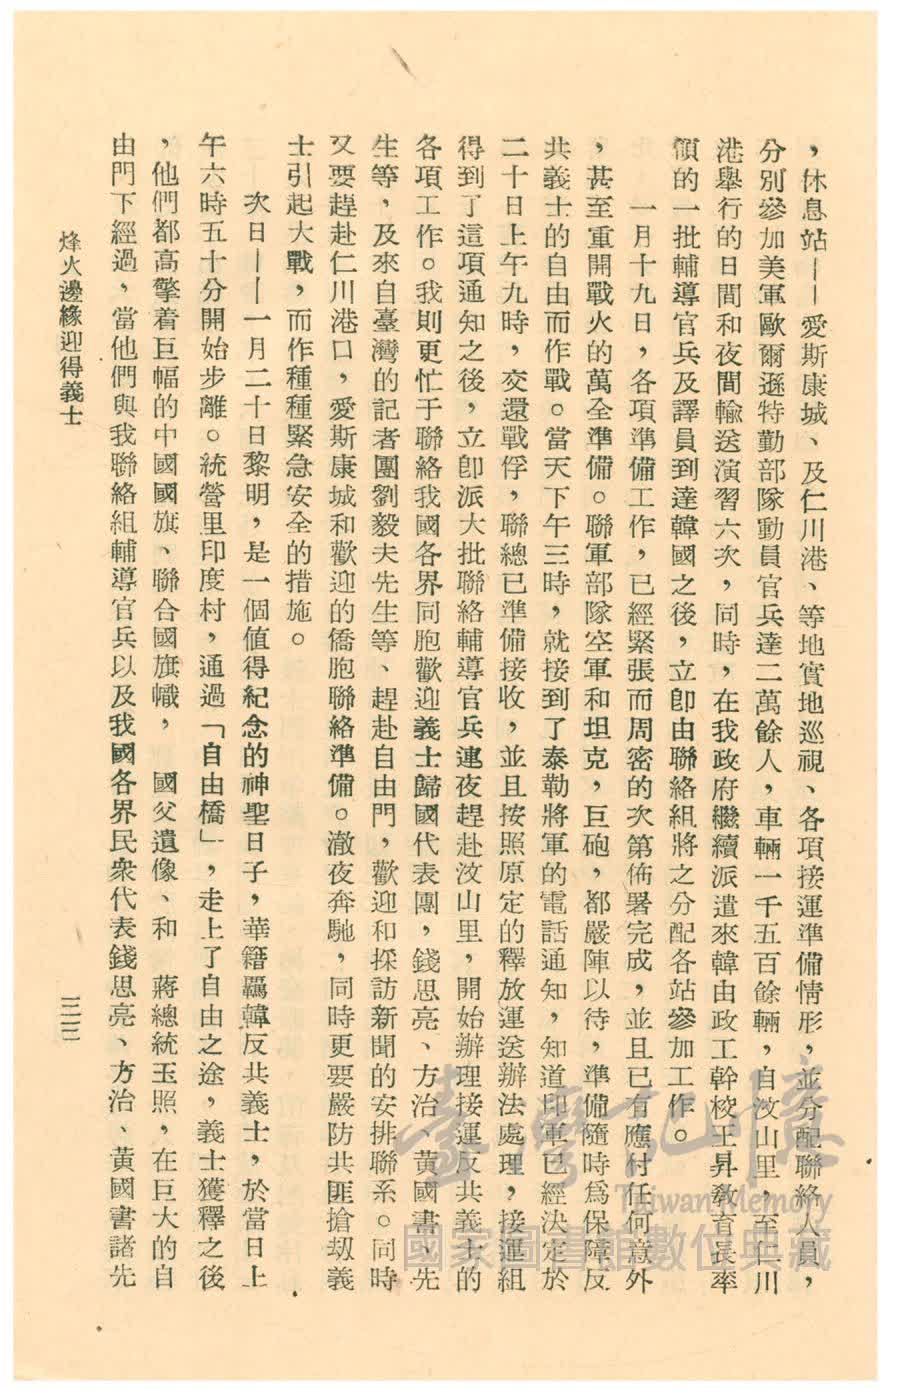 ，休息站——愛斯康城、及仁川港、等地實地巡視、各項接運準備情形，並分配聯絡人員，
分別參加美軍歐爾遜特勤部隊動員官兵達二萬餘人，車輛一千五百餘輛，自汶山里，至仁川
港舉行的日間和夜間輸送演習六次，同時，在我政府繼續派遣來韓由政工幹校王昇教育長率
領的一批輔導官兵及譯員到達韓國之後，立卽由聯絡組將之分配各站參加工作。
一月十九日，各項準備工作，已經緊張而周密的次第佈署完成，並且已有應付任何意外
，甚至重開戰火的萬全準備。聯軍部隊空軍和坦克，巨砲，都嚴陣以待，準備隨時爲保障反
共義士的自由而作戰。當天下午三時，就接到了泰勒將軍的電話通知，知道印軍已經決定於
二十日上午九時，交還戰俘，聯總已準備接收，並且按照原定的釋放運送辦法處理，接運組
得到了這項通知之後，立卽派大批聯絡輔導官兵連夜趕赴汶山里，開始辦理接運反共義士的
各項工作。我則更忙于聯絡我國各界同胞歡迎義士歸國代表團，錢思亮、方治、黃國書、先
生等，及來自臺灣的記者團劉毅夫先生等、趕赴自由門，歡迎和採訪新聞的安排聯系。同時
又要趕赴仁川港口，愛斯康城和歡迎的僑胞聯絡準備。澈夜奔馳，同時更要嚴防共匪搶劫義
士引起大戰，而作種種緊急安全的措施。
次日——一月二十日黎明，是一個值得紀念的神聖日子，華籍羈韓反共義士，於當日上
午六時五十分開始步離。統營里印度村，通過「自由橋」，走上了自由之途，義士獲釋之後
，他們都高擎着巨幅的中國國旗、聯合國旗幟，　國父遺像、和　蔣總統玉照，在巨大的自
由門下經過，當他們與我聯絡組輔導官兵以及我國各界民衆代表錢思亮、方治、黃國書諸先
烽火邊緣迎得義士
三三
臺灣記憶
Taiwan Memory
國家圖書館數位典藏